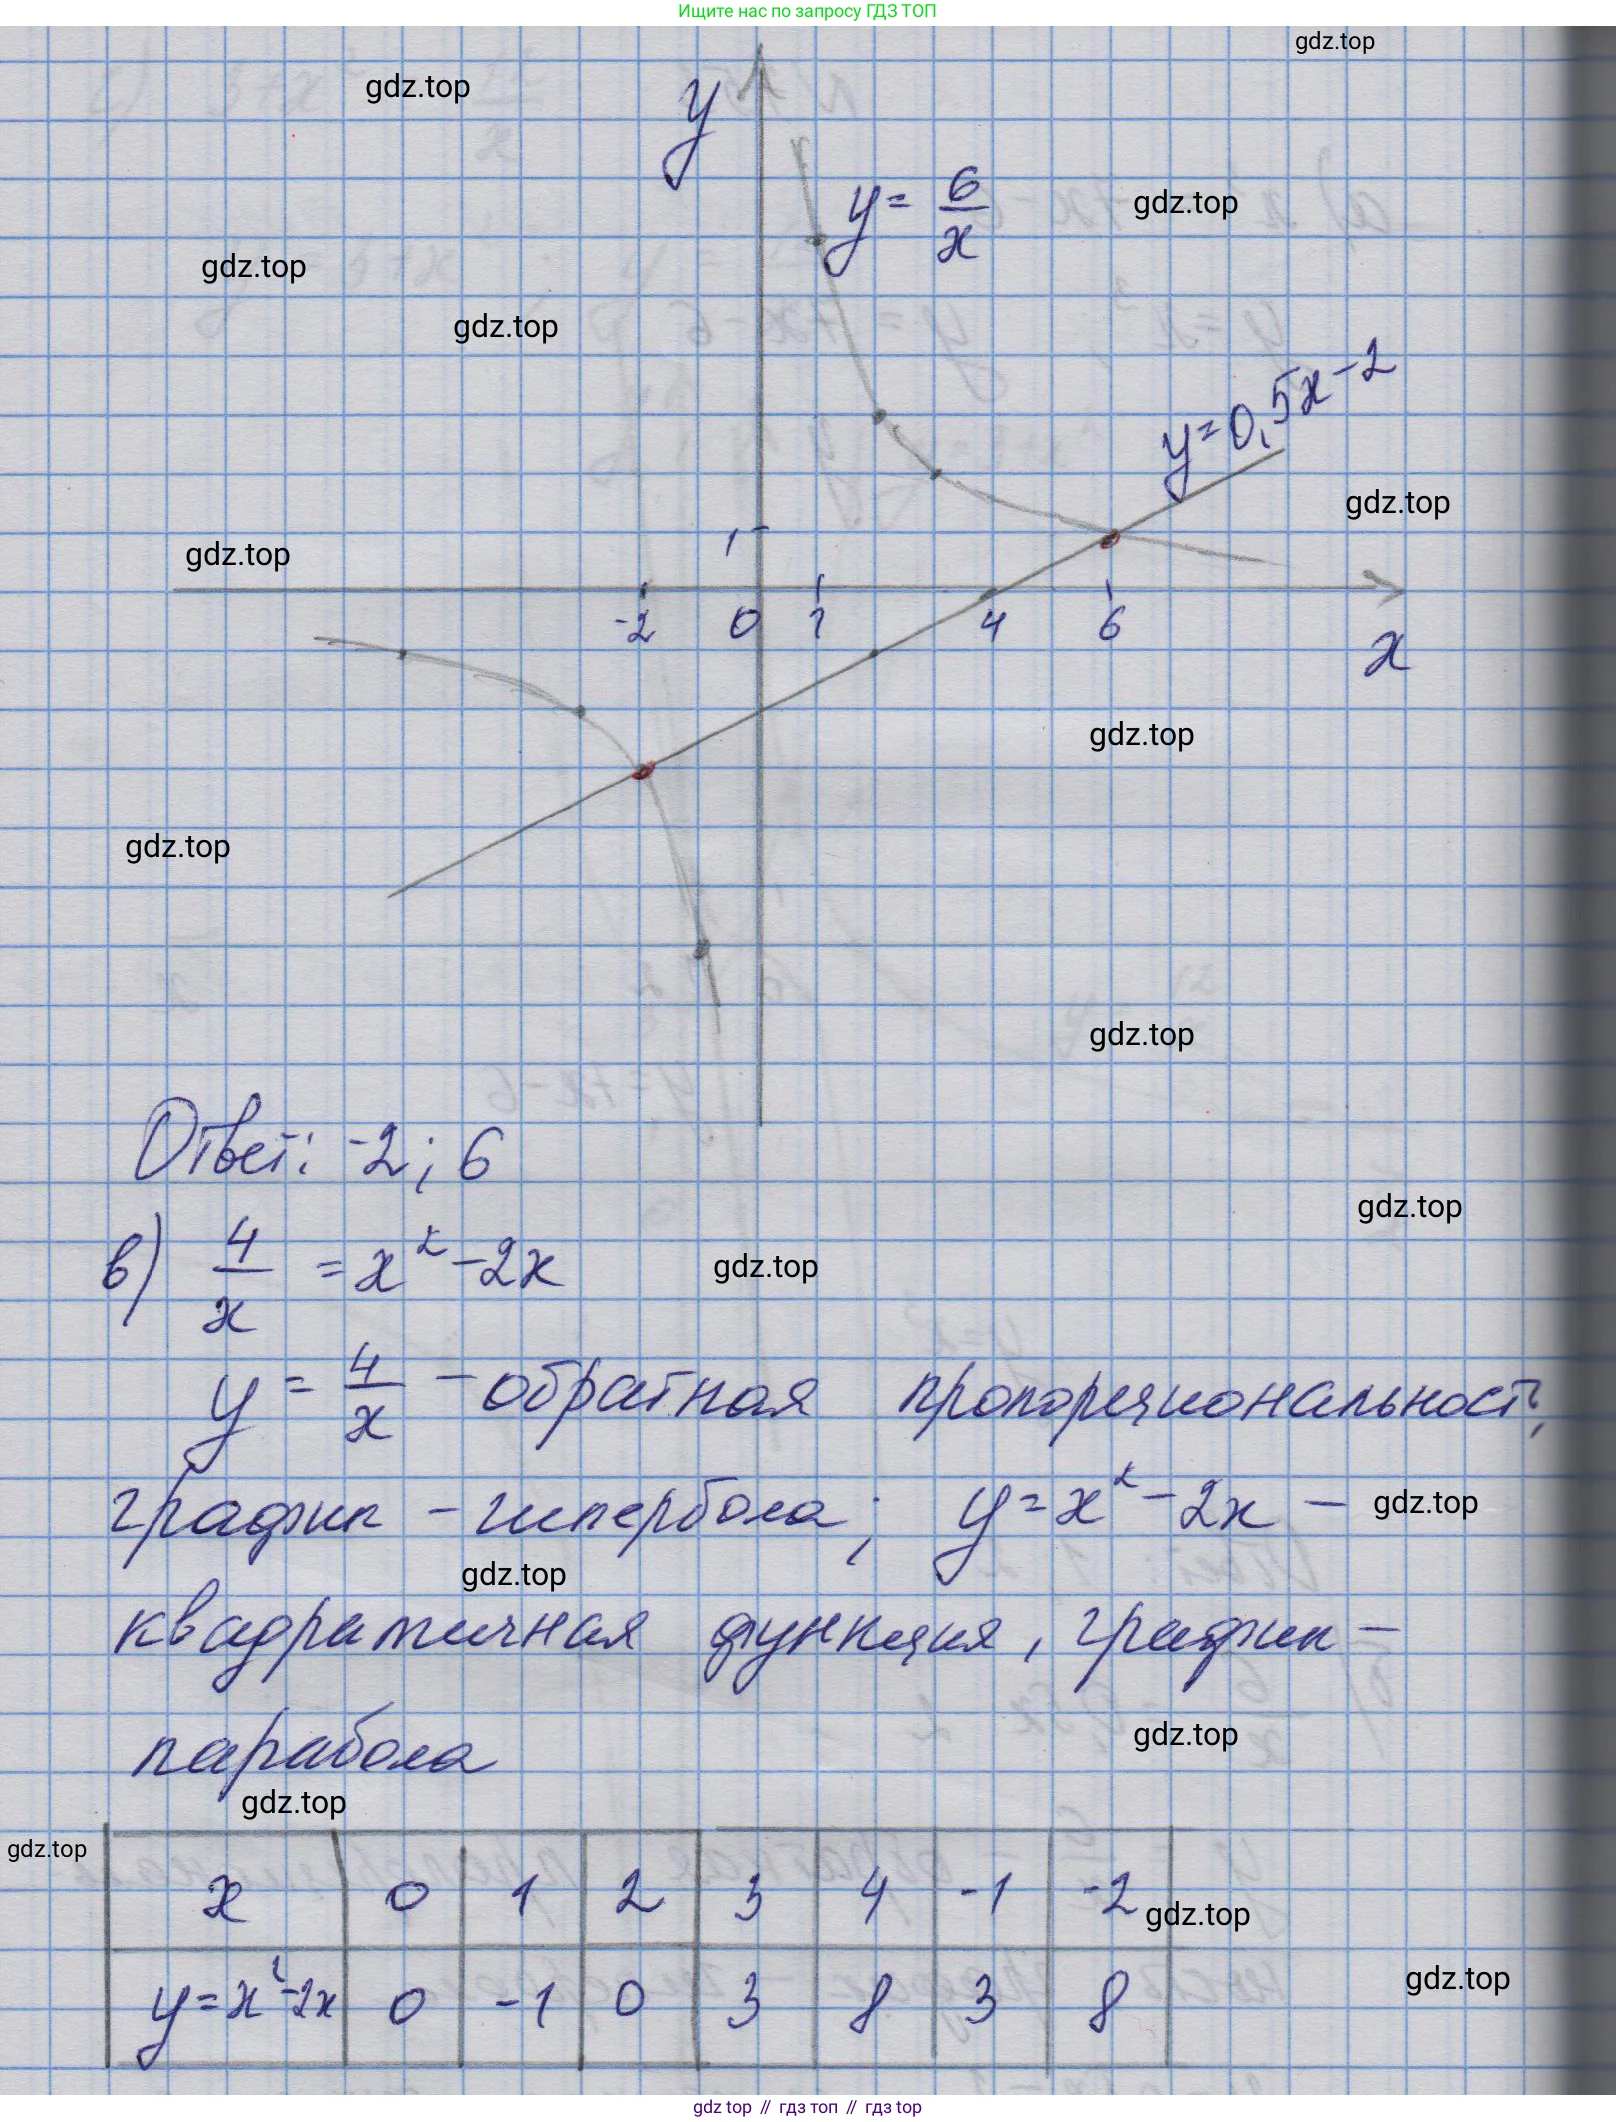 Ищите нас по запросу ГДЗ ТОП
gdz.top
gdz.top
y
y = 6/x
gdz.top
gdz.top
gdz.top
y=0,5x-2
gdz.top
gdz.top
1
-2 0 1 4 6
x
gdz.top
gdz.top
gdz.top
Ответ: -2; 6
gdz.top
в) 4/x = x² - 2x
gdz.top
y = 4/x - обратная пропорциональность,
график - гипербола; y = x² - 2x -
gdz.top
gdz.top
квадратичная функция, график -
парабола
gdz.top
gdz.top
gdz.top
x 0 1 2 3 4 -1 -2
gdz.top
y=x²-2x 0 -1 0 3 8 3 8
gdz.top
gdz top // гдз топ // гдз top